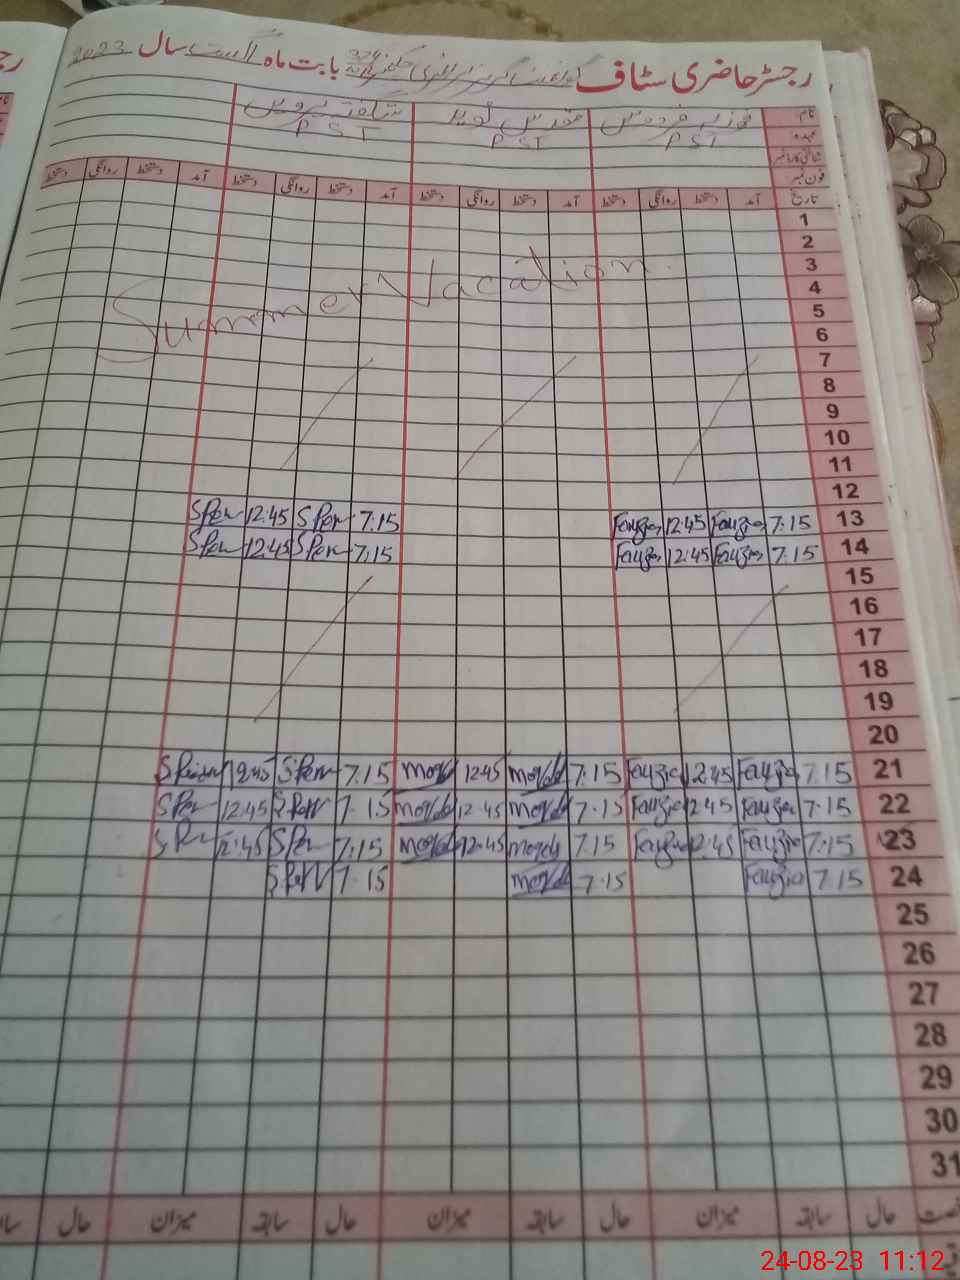 رجسٹر حاضری سٹاف گورنمنٹ گرلز پرائمری بابت ماہ اگست سال 2023
نام فوزیہ فردوس مقدس تنویر شگفتہ پروین
عہدہ PST PST PST
شناختی کارڈ نمبر
فون نمبر
تاریخ آمد دستخط روانگی دستخط آمد دستخط روانگی دستخط آمد دستخط روانگی دستخط آمد دستخط روانگی دستخط
1
2
3
Summer Vacation
4
5
6
7
8
9
10
11
12
13 7.15 Fauzia 12:45 Fauzia 7.15 SPer 12:45 SPer
14 7.15 Fauzia 12:45 Fauzia 7.15 SPer 12:45 SPer
15
16
17
18
19
20
21 7.15 Fauzia 12:45 Fauzia 7.15 12:45 7.15 SPer 12:45
22 7.15 Fauzia 12:45 Fauzia 7.15 12:45 7.15 SPer 12:45 SPer
23 7.15 Fauzia 12:45 Fauzia 7.15 12:45 7.15 SPer 12:45 SPer
24 7.15 Fauzia 7.15 7.15 SPer
25
26
27
28
29
30
31
حال سابقہ میزان حال سابقہ میزان حال سابقہ میزان حال
24-08-23 11:12